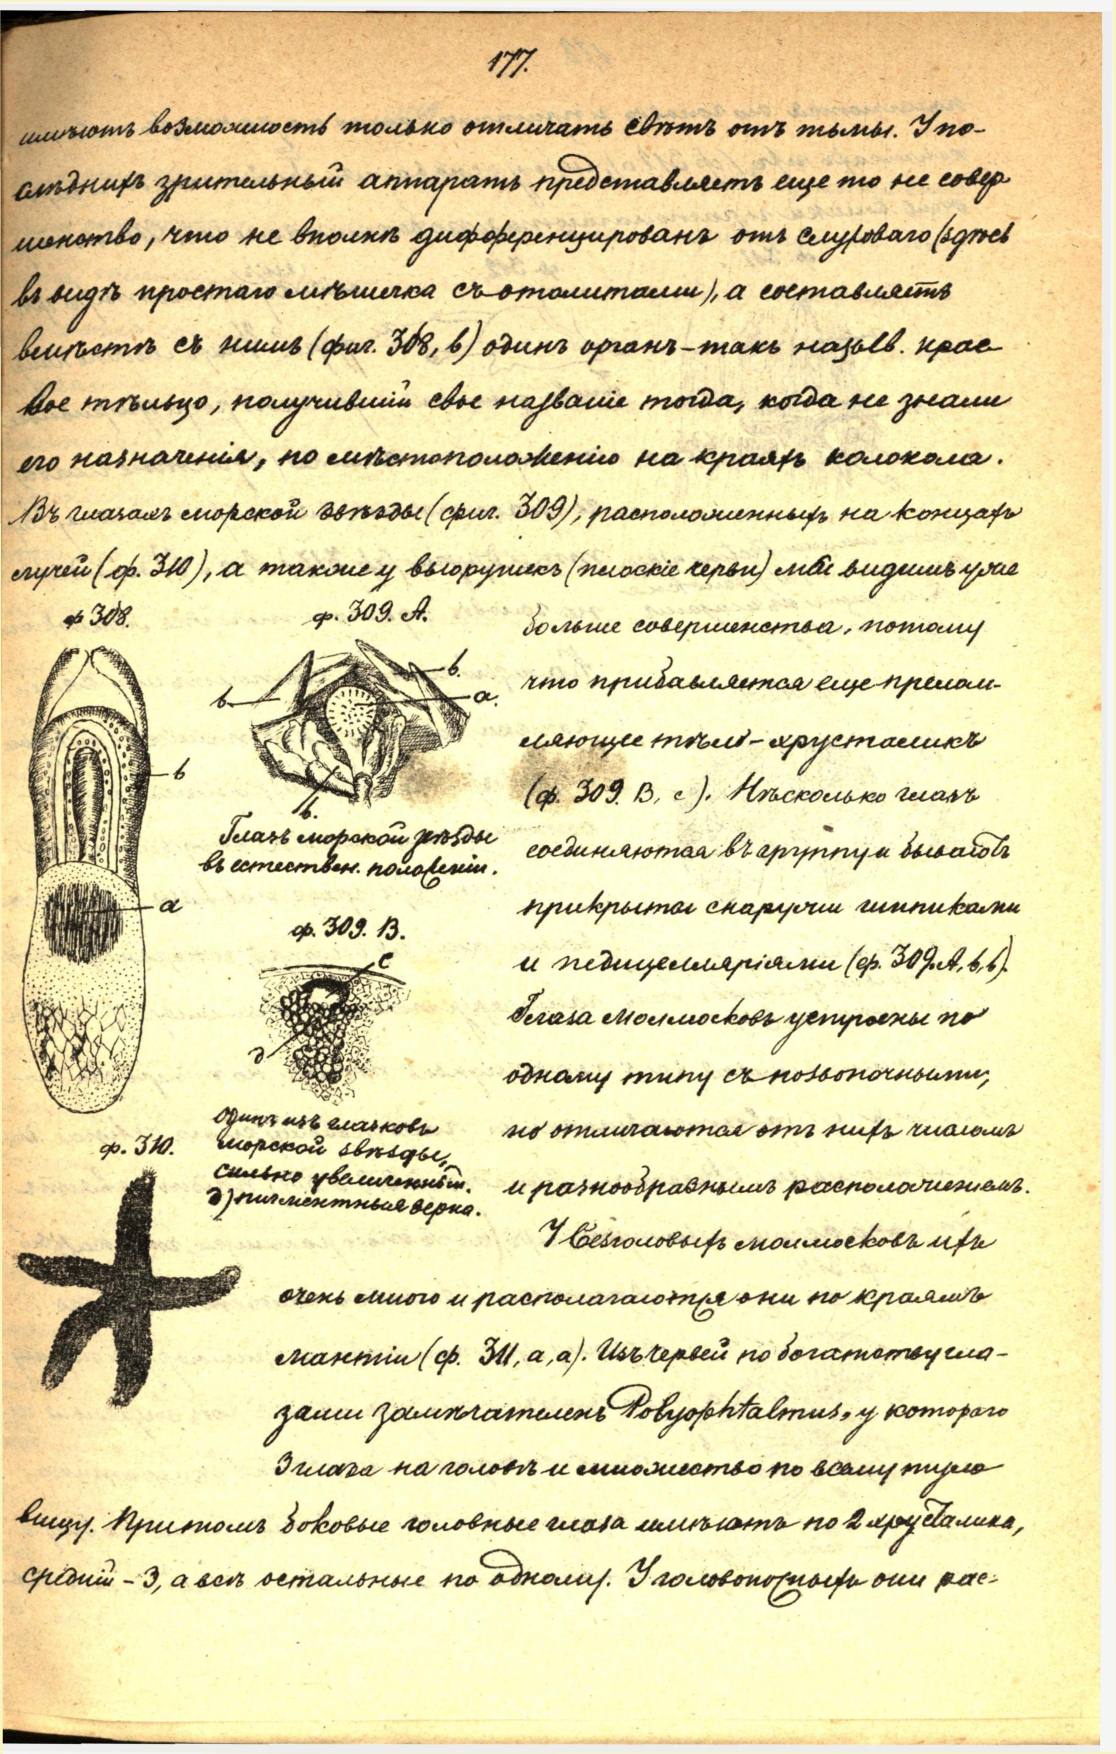 177.
имѣютъ возможность только отличать свѣтъ отъ тьмы. У по-
слѣднихъ зрительный аппаратъ представляетъ еще то не совер
шенство, что не вполнѣ дифференцированъ отъ слуховаго (здѣсь
въ видѣ простаго мѣшечка съ отолитами), а составляетъ
вмѣстѣ съ нимъ (фиг. 308, в) одинъ органъ - такъ назыв. крае
вое тѣльцо, получившій свое названіе тогда, когда не знали
его назначенія, по мѣстоположенію на краяхъ колокола.
Въ глазахъ морской звѣзды (фиг. 309), расположенныхъ на концахъ
лучей (ф. 310), а также у вьюрушекъ (плоскіе черви) мы видимъ уже
ф 308.
ф. 309. А.
больше совершенства, потому
что прибавляется еще прелом-
ляющее тѣло - хрусталикъ
(ф. 309. В, с). Нѣсколько глазъ
соединяются въ группу и бываютъ
прикрыты снаружи шипиками
и педицелляріями (ф. 309. А, в, в).
Глаза моллюсковъ устроены по
одному типу съ позвоночными,
но отличаются отъ нихъ числомъ
и разнообразнымъ расположеніемъ.
в
а
в
в.
а.
в.
Глазъ морской звѣзды
въ естествен. положеніи.
ф. 309. В.
с
д
одинъ изъ глазковъ
морской звѣзды,
сильно увеличенный.
д) пигментныя зерна.
ф. 310.
У безголовыхъ моллюсковъ ихъ
очень много и располагаются они по краямъ
мантіи (ф. 311, а, а). Изъ червей по богатству гла-
зами замѣчателенъ Polyophtalmus, у котораго
3 глаза на головѣ и множество по всему туло
вищу. Притомъ боковые головные глаза имѣютъ по 2 хрусталика,
средній - 3, а всѣ остальные по одному. У головоногихъ они рас-